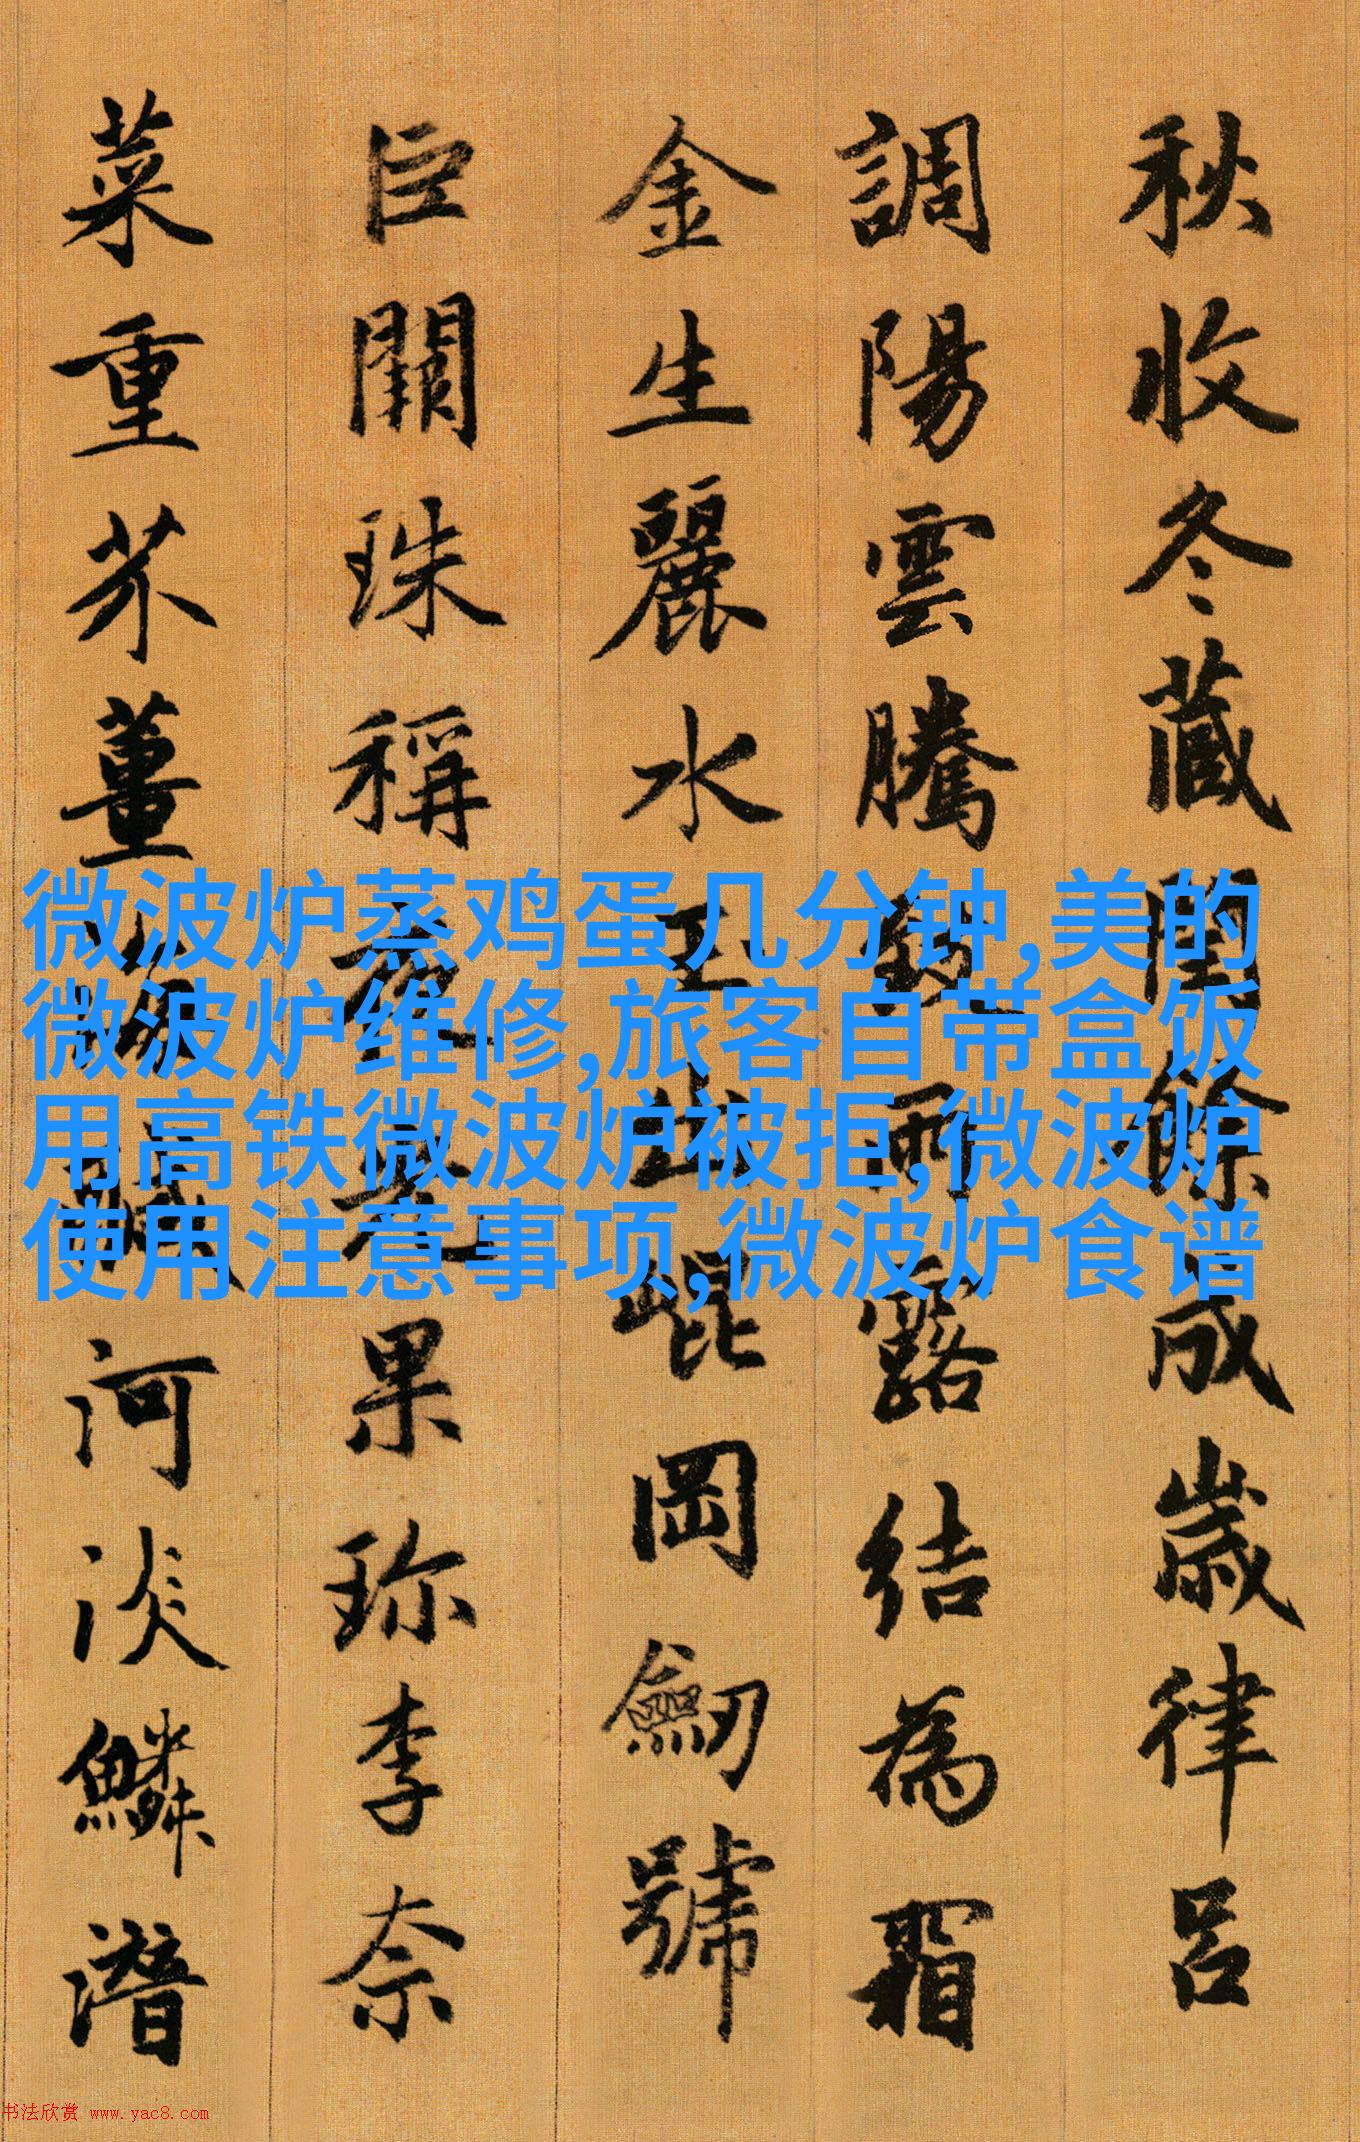 秋收冬藏閏餘成歲律呂
調陽雲騰致雨露結為霜
金生麗水玉出崐岡劒號
巨闕珠稱夜光果珍李奈
菜重芥薑海鹹河淡鱗潛
微波炉蒸鸡蛋几分钟,美的
微波炉维修,旅客自带盒饭
用高铁微波炉被拒,微波炉
使用注意事项,微波炉食谱
书法欣赏 www.yac8.com